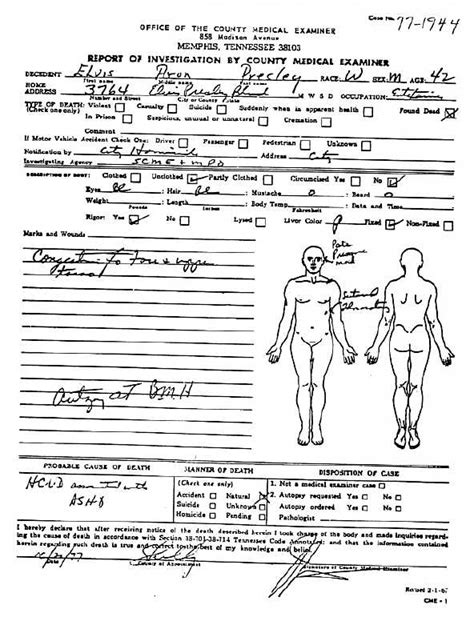 Case No. 77-1944
OFFICE OF THE COUNTY MEDICAL EXAMINER
858 Madison Avenue
MEMPHIS, TENNESSEE 38103
REPORT OF INVESTIGATION BY COUNTY MEDICAL EXAMINER
DECEDENT Elvis Aron Presley RACE W SEX M AGE 42
First name Middle name Last name
HOME ADDRESS 3764 Elvis Presley Blvd M W S D OCCUPATION
Number and Street City or County State
TYPE OF DEATH: Violent Casualty Suicide Suddenly when in apparent health Found Dead
(Check one only) In Prison Suspicious, unusual or unnatural Cremation
Comment
If Motor Vehicle Accident Check One: Driver Passenger Pedestrian Unknown
Notification by City Homicide Address City
Investigating Agency SCME + MPD
DESCRIPTION OF BODY: Clothed Unclothed Partly Clothed Circumcised Yes No
Eyes Bl Hair Bl Mustache 0 Beard 0
Weight Length Body Temp. Date and Time
Pounds Fahrenheit
Rigor: Yes No Lysed Livor Color P Fixed Non-Fixed
Marks and Wounds
Congestion to
Autopsy at BMH
PROBABLE CAUSE OF DEATH MANNER OF DEATH DISPOSITION OF CASE
HCVD
ASHD
(Check one only)
Accident Natural
Suicide Unknown
Homicide Pending
1. Not a medical examiner case
2. Autopsy requested Yes No
Autopsy ordered Yes No
Pathologist
I hereby declare that after receiving notice of the death described herein I took charge of the body and made inquiries regarding the cause of death in accordance with Section 38-701-38-714 Tennessee Code Annotated; and that the information contained herein regarding such death is true and correct to the best of my knowledge and belief.
Signature of County Medical Examiner
Revised 2-1-67
CME - 1